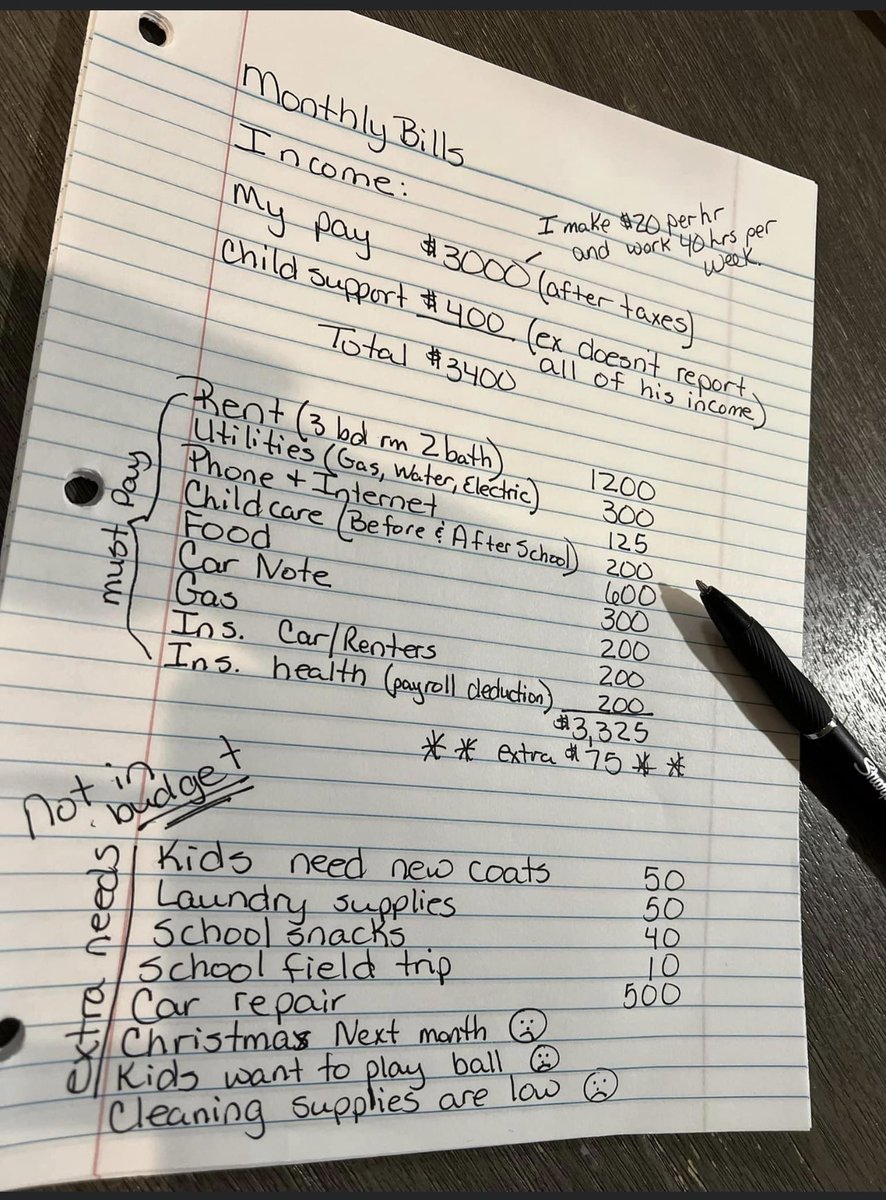 Monthly Bills
Income:
My pay $3000 (after taxes)
I make $20 per hr
and work 40 hrs per
week.
Child support $400 (ex doesn't report
all of his income)
Total $3400
must pay
Rent (3 bd rm 2 bath) 1200
Utilities (Gas, Water, Electric) 300
Phone + Internet 125
Childcare (Before & After School) 200
Food 600
Car Note 300
Gas 200
Ins. Car/Renters 200
Ins. health (payroll deduction) 200
$3,325
** extra $75 **
not in
budget
extra needs
Kids need new coats 50
Laundry supplies 50
School snacks 40
School field trip 10
Car repair 500
Christmas Next month ☹
Kids want to play ball ☹
Cleaning supplies are low ☹